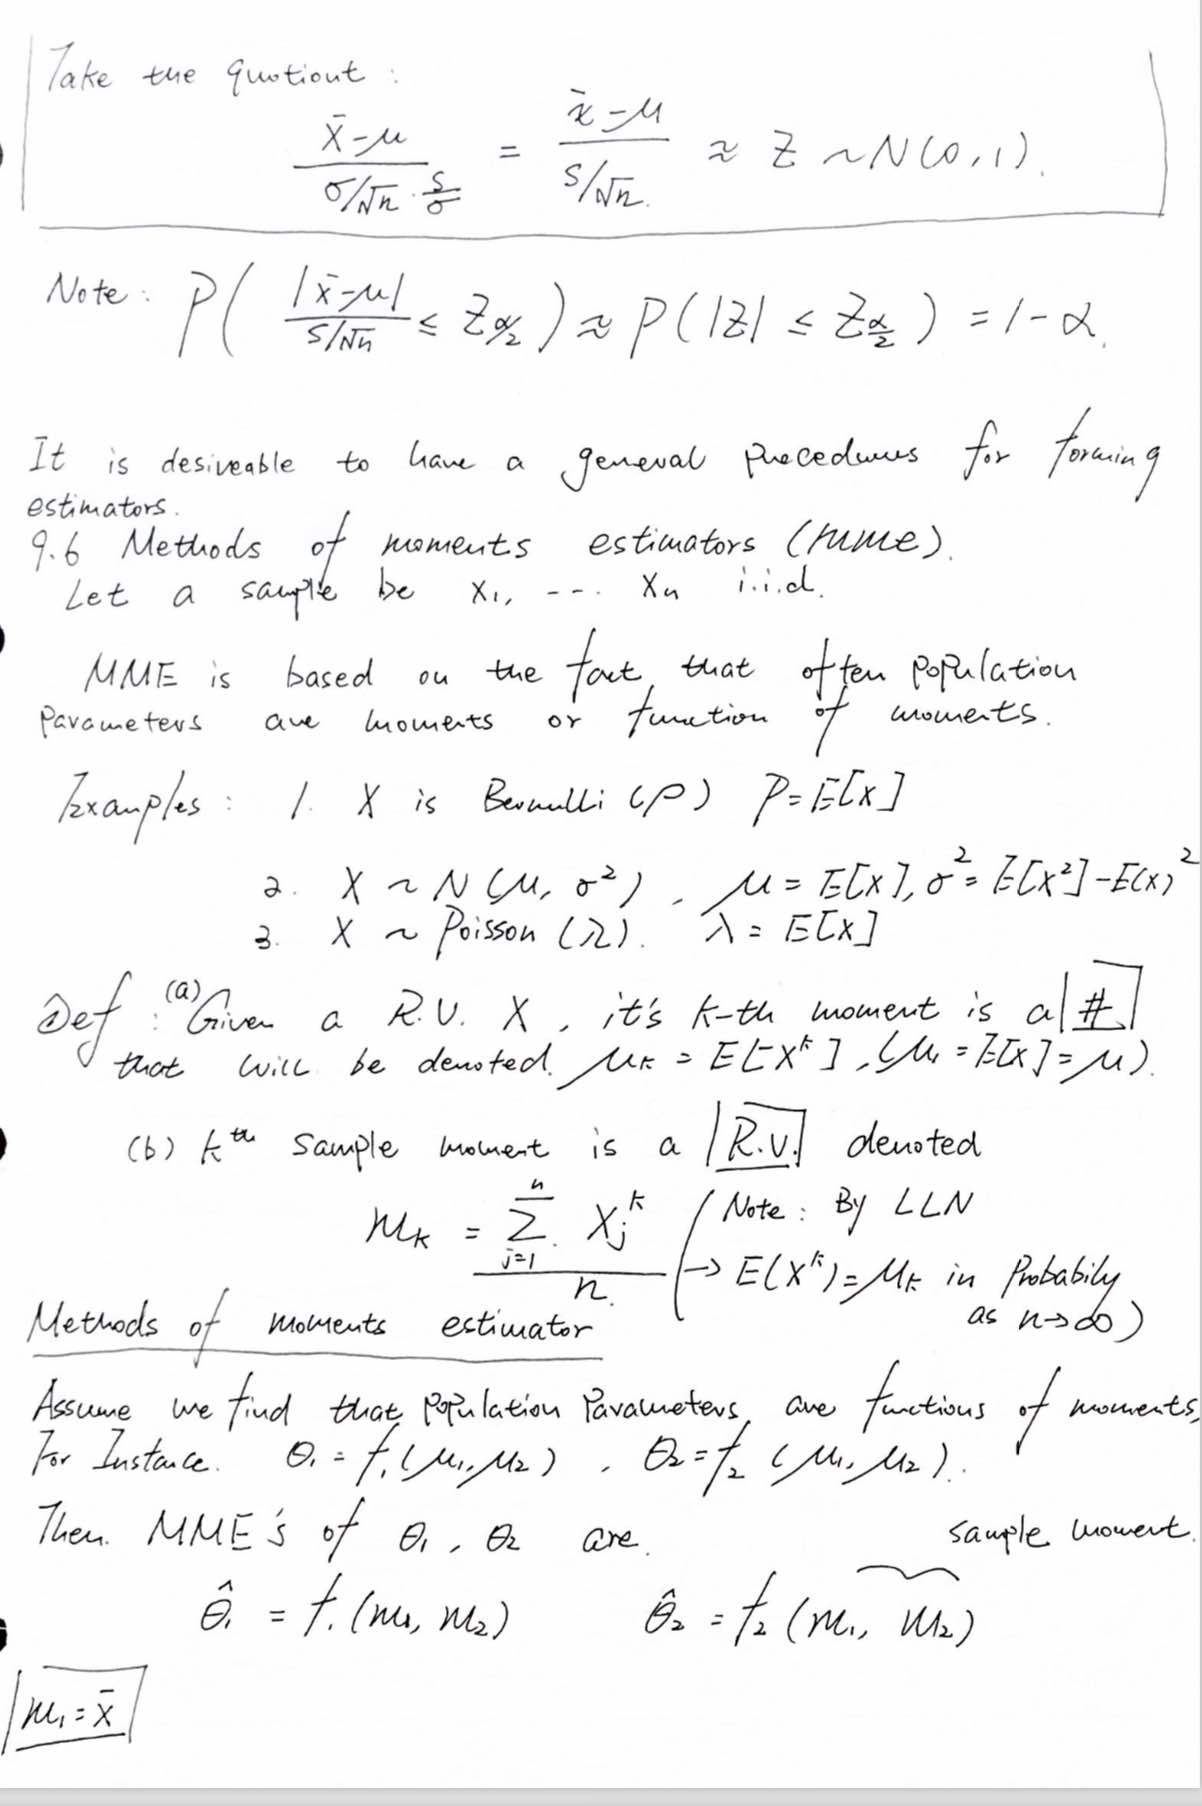 Take the quotiout :
x̄-μ / (σ/√n · s/σ) = x̄-μ / (s/√n) ≈ Z ~ N(0,1).
Note : P( |x̄-μ| / (s/√n) ≤ Z_α/2 ) ≈ P( |Z| ≤ Z_α/2 ) = 1-α.
It is desireable to have a general procedures for forming
estimators.
9.6 Methods of moments estimators (mme).
Let a sample be X₁, --- Xn i.i.d.
MME is based on the fact, that often population
parameters are moments or function of moments.
Examples : 1. X is Bernulli (p) P=E[X]
2. X ~ N(μ, σ²), μ = E[X], σ² = E[X²]-E(X)²
3. X ~ Poisson (λ). λ = E[X]
Def : (a) Given a R.V. X, it's k-th moment is a #
that will be denoted. μk = E[X^k], (μ₁ = E[X] = μ).
(b) k^th sample moment is a R.V. denoted
mk = Σ_{j=1}^{n} X_j^k / n. (Note : By LLN
→ E(X^k)=μk in Probabily
as n→∞)
Methods of moments estimator
Assume we find that, population parameters, are functions of moments,
For Instance. θ₁ = f₁(μ₁, μ₂), θ₂ = f₂(μ₁, μ₂).
Then. MME's of θ₁, θ₂ are.
sample moment.
θ̂₁ = f₁(m₁, m₂) θ̂₂ = f₂(m₁, m₂)
m₁ = x̄